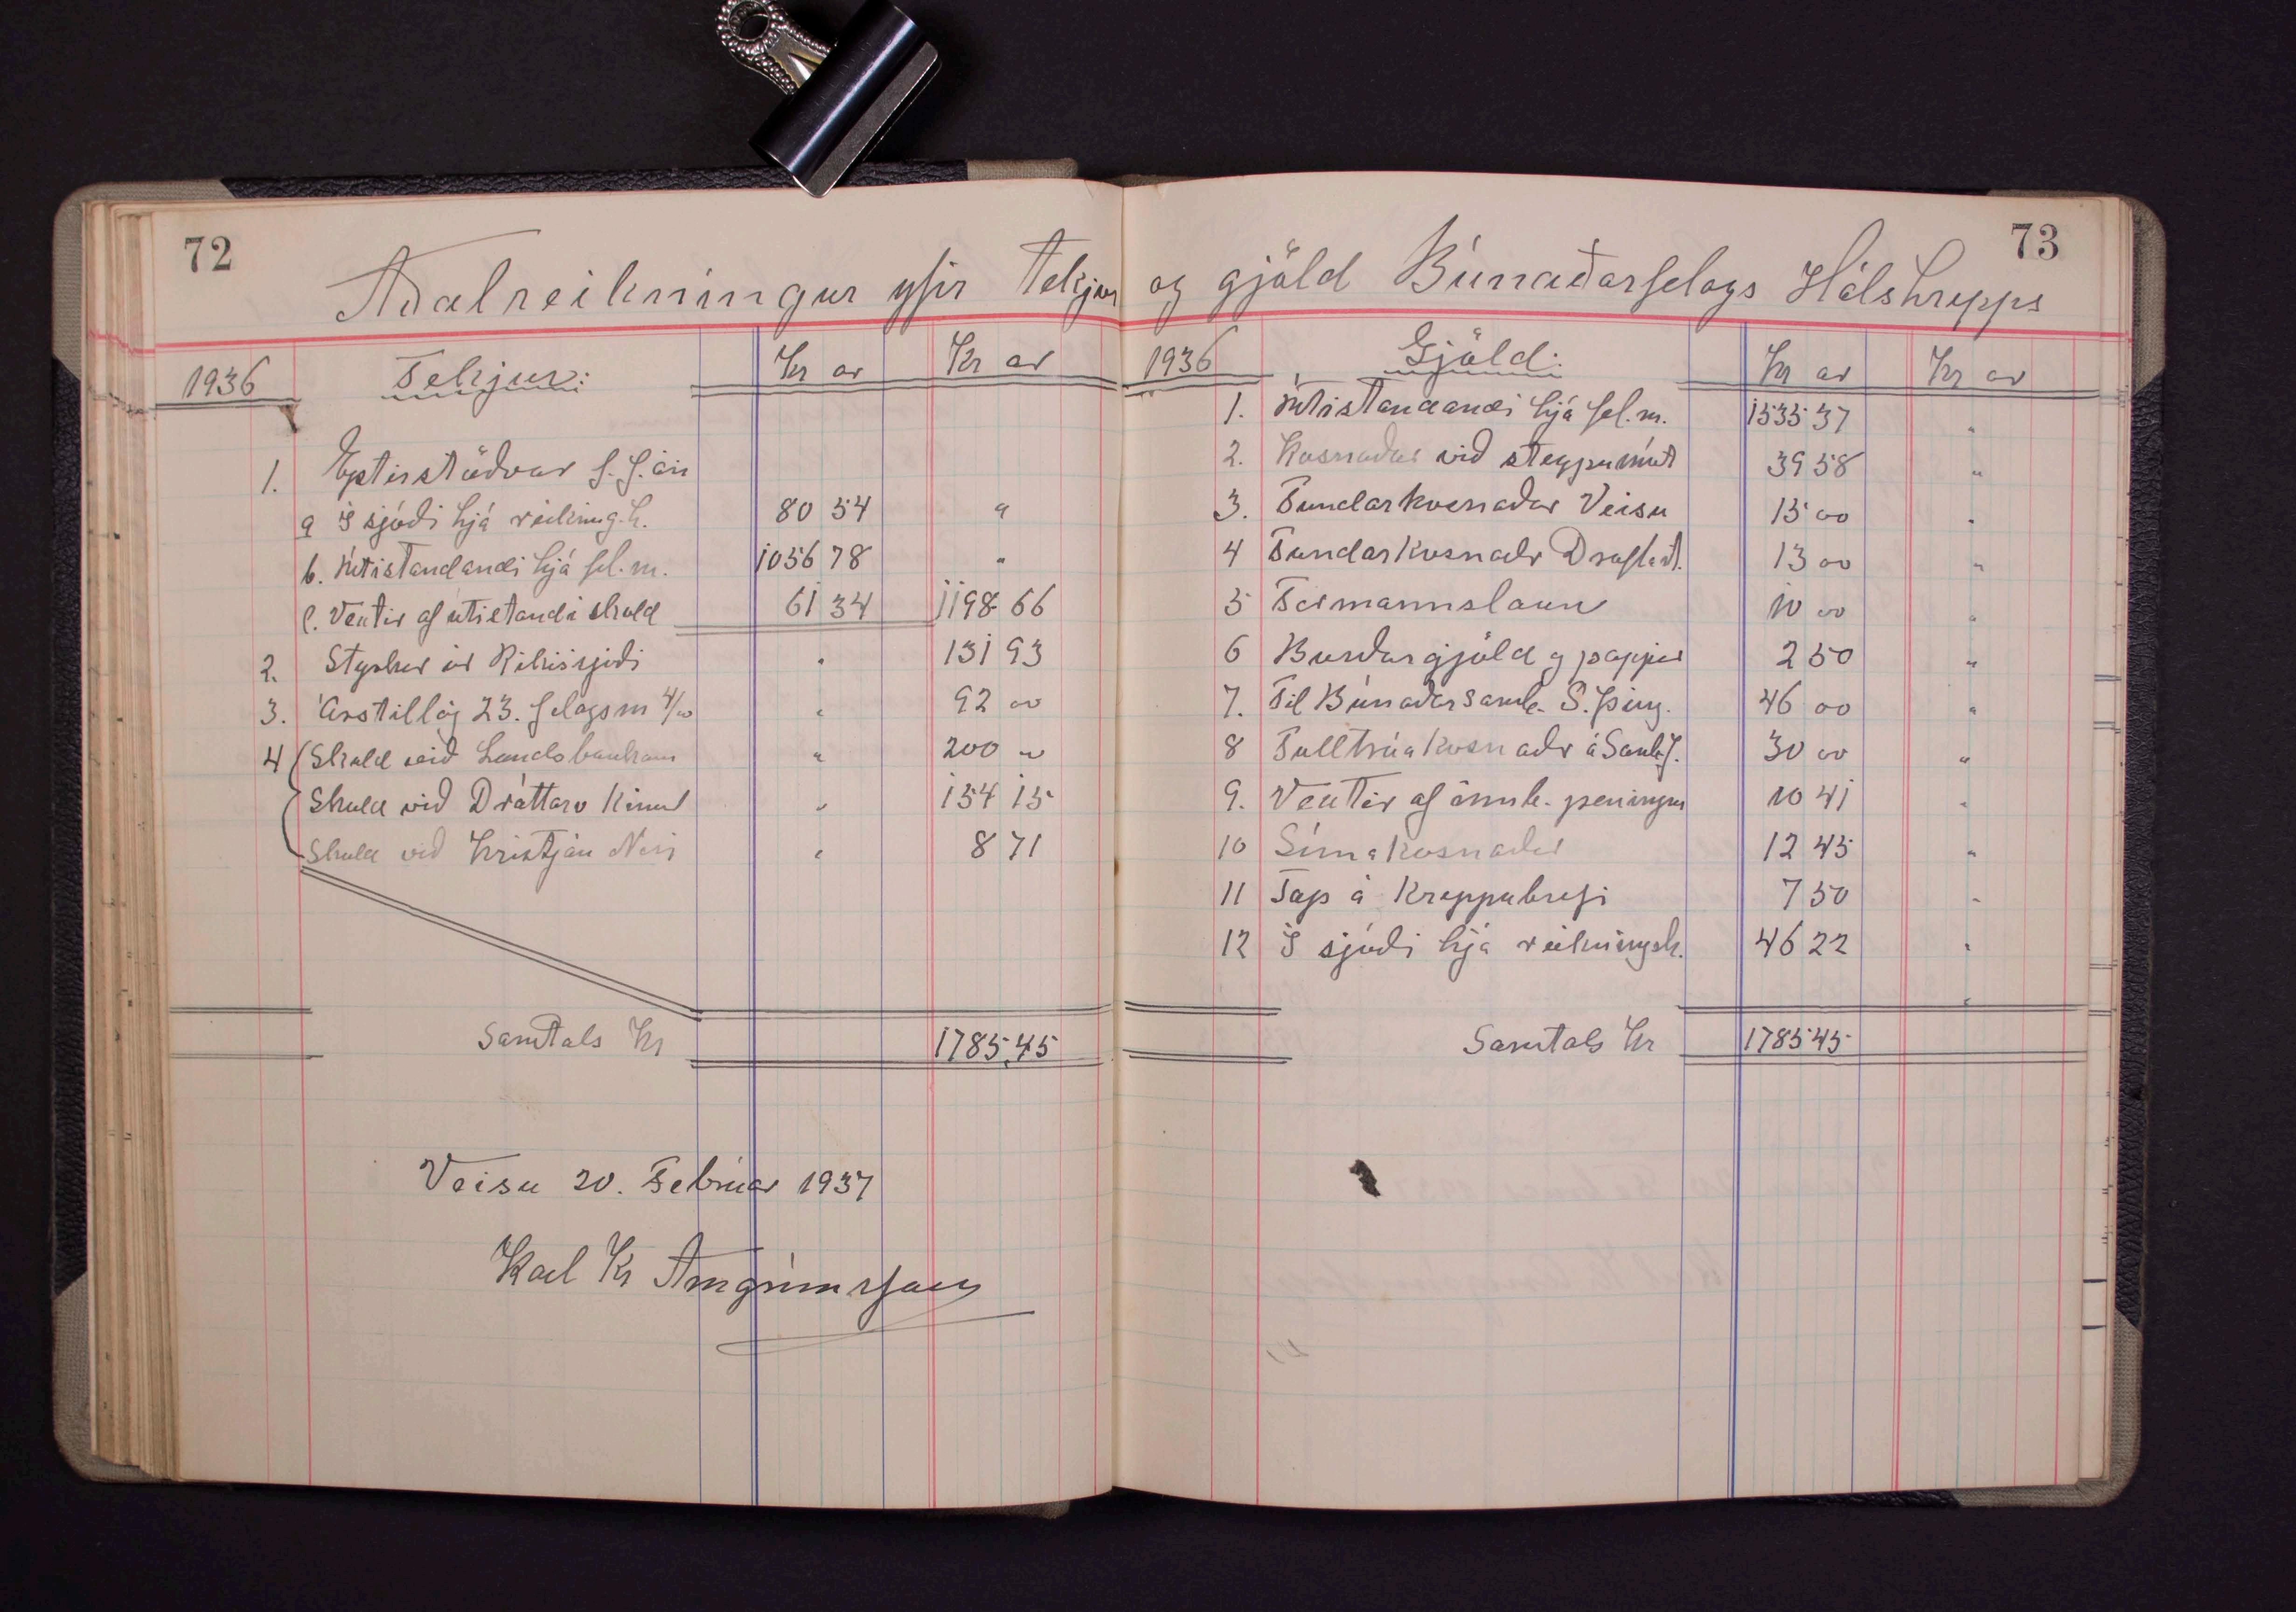 72
73
Aðalreikningur yfir Tekjur og gjöld Búnaðarfelags Hálshrepps
1936 Tekjur: Kr ar Kr ar
1. Eptirstöðvar f. f. ári
a Í sjóði hjá reikning.h. 80 54 "
b. Útistandandi hjá fel. m. 1056 78 "
c. Vextir af útistandi skuld 61 34 1198 66
2. Styrkur úr Ríkissjóði " 131 93
3. Árstillög 23. felagsm 4/00 " 92 00
4 Skuld við Landsbankann " 200 00
Skuld við Dráttarv Kinul " 154 15
Skuld við Kristján Nesi " 8 71
Samtals Kr 1785,45
Veisu 20. Febrúar 1937
Karl Kr Arngrímsson
1936 Gjöld: Kr ar Kr ar
1. Útistandandi hjá fel. m. 1535 37 "
2. Kosnaður við steypumót 39 58 "
3. Fundarkosnaður Veisu 15 00 "
4 Fundarkosnaðr Draflast. 13 00 "
5 Formannslaun 10 00 "
6 Burðargjöld og pappír 2 50 "
7. Til Búnaðarsamb. S. Þing. 46 00 "
8 Fulltrúakosnaðr á Samb.f. 30 00 "
9. Vextir af innh. peningum 10 41 "
10 Símakosnaður 12 45 "
11 Tap á Kreppubrefi 7 50 "
12 Í sjóði hjá reikningsh. 46 22 "
Samtals Kr 1785 45